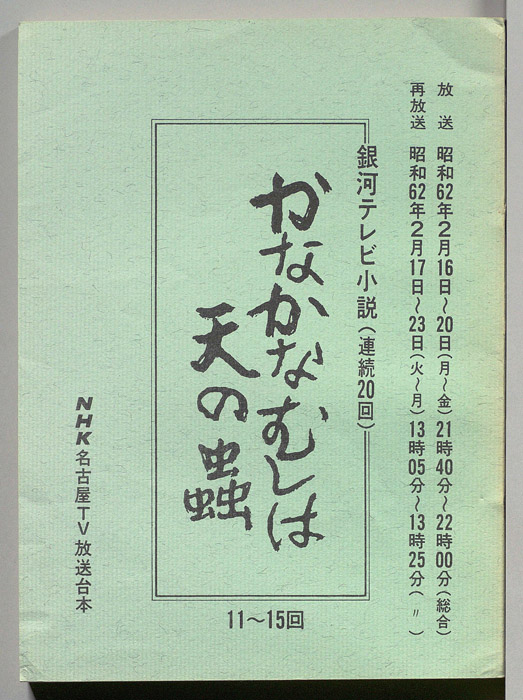 放送 昭和62年2月16日～20日(月～金)21時40分～22時00分(総合)
再放送 昭和62年2月17日～23日(火～月)13時05分～13時25分(〃)
銀河テレビ小説(連続20回)
かなかなむしは
天の蟲
NHK名古屋TV放送台本
11～15回